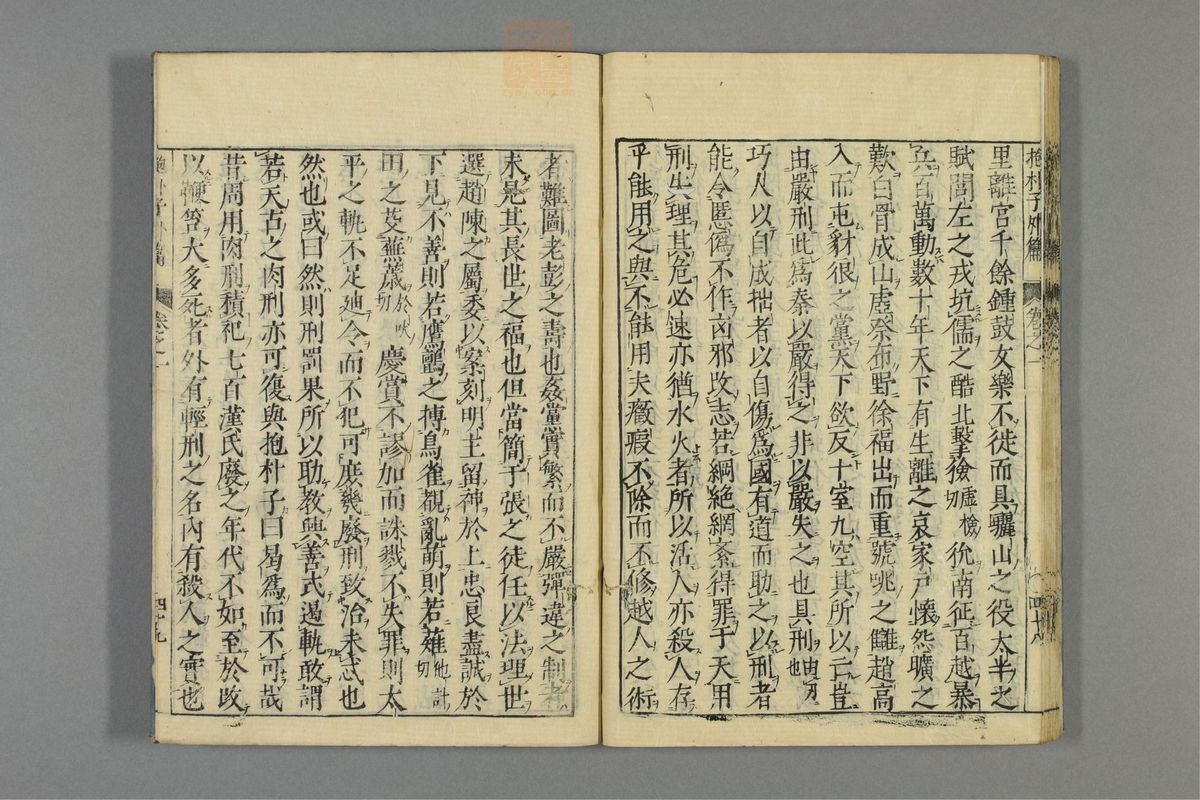 抱朴子外篇 卷之一 四十八
里離宮千餘鍾鼓女樂不徙而具驪山之役太半之
賦閭左之戎坑儒之酷北擊獫虛檢切狁南征百越暴
兵百萬動數十年天下有生離之哀家戶懷怨曠之
歎白骨成山虛祭布野徐福出而重號咷之讎趙高
入而屯豺狼之黨天下欲反十室九空其所以亡豈
由嚴刑此爲秦以嚴得之非以嚴失之也且刑由刃也
巧人以自成拙者以自傷爲國有道而助之以刑者
能令慝僞不作凶邪改志若綱絕網紊得罪于天用
刑失理其危必速亦猶水火者所以活人亦殺人存
乎能用之與不能用夫癥瘕不除而不修越人之術
者難圖老彭之壽也姦黨實繁而不嚴彈違之制者
未見其長世之福也但當簡于張之徒任以法理世
選趙陳之屬委以案刻明主留神於上忠良盡誠於
下見不善則若鷹鸇之搏鳥雀覩亂萌則若薙他計切
田之芟蕪薉於吠切慶賞不謬加而誅戮不失罪則太
平之軌不足迪令而不犯可庶幾廢刑致治未忒也
然也或曰然則刑罰果所以助教興善式遏軌敢謂
若夫古之肉刑亦可復與抱朴子曰曷爲而不可哉
昔周用肉刑積祀七百漢氏廢之年代不如至於改
以鞭笞大多死者外有輕刑之名內有殺人之實也
卷之一 四十九